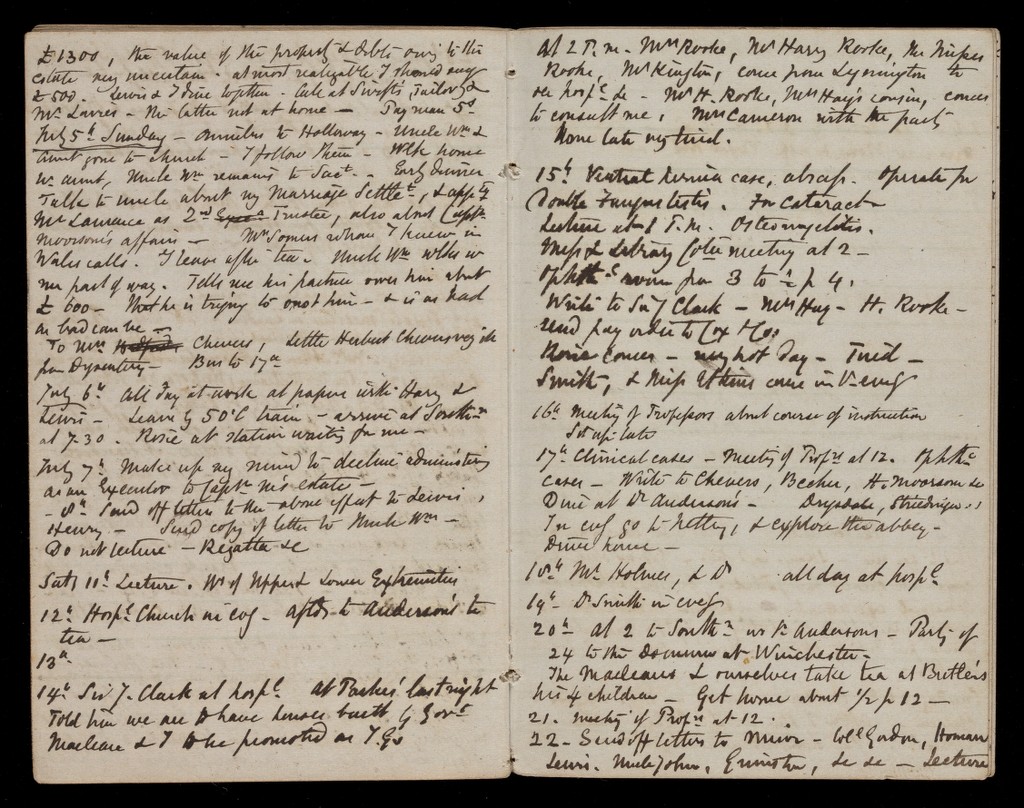 £1300, the value of the property & debts owing to the
estate very uncertain. at most realizable I should say
£500. Lewis & I dine together. Call at Swift's, Tailor, &
Mr. – the latter not at home – Pay man 5s.
July 5th Sunday – omnibus to Holloway – Uncle Wm &
aunt gone to church – I follow them – Walk home
w. aunt, Uncle Wm remains to Sact. – Early dinner
Talk to uncle about my Marriage Settlet., & appt. of
Mr Laurance as 2nd Trustee, also about Capt.
Moorsom's affairs – Mrs Somers whom I knew in
Wales calls. I leave after tea. Uncle Wm walks w
me part of way. Tells me his partner owes him about
£600 – that he is trying to oust him – & is as bad
as bad can be –
To Mrs Chevers, little Herbert Chevers very ill
from Dysentery – Bus to 17a
July 6th. All Day at work at papers with Harry &
Lewis – Leave by 5 o'C train – arrive at Southn
at 7.30. Rosie at station waiting for me –
July 7th Make up my mind to decline administering
as an Executor to Capt. M's estate –
– 8th. Send off letters to the above effect to Lewis,
Henry – Send copy of letter to Uncle Wm –
Do not lecture – Regatta &c
Saty 11th Lecture. Ws of Upper & Lower Extremities
12th Hospl Church in evg – after to Anderson's to
tea –
13th.
14th Sir J. Clark at hospl. at Parkes' last night
Told him we are to have houses built by Govt
Maclean & I to be promoted as I.Gs
At 2 P.m. Mrs Rooke, Mr Harry Rooke, the Misses
Rooke, Mr Kington, come from Lymington to
see hospl &c – Mr H. Rooke, Mrs Hay's cousin, comes
to consult me, Mrs Cameron with the party
None late very tired.
15th Ventral hernia case, abscess. Operate for
Double Fungus testis. For Cataract
Lecture at 1 P.m. Osteomyelitis.
Mess & Library Cotee meeting at 2 –
Ophthc room from 3 to ½ p 4.
Write to Sir J Clark – Mrs Hay – H. Rooke –
send pay order to Cox & Co.
Rosie comes – very hot Day – Tired –
Smith, & Miss come in evg
16th Meeting of Professors about course of instruction
Set up late
17th Clinical cases – Meeting of Profrs at 12. Ophthc
cases – Write to Chevers, Becher, H. Moorsom &c
Dine at Dr Anderson's – Drysdale,
In evg go to Netley, & explore the abbey –
Drive home –
18th Mr. Holmes, & Dr all day at hospl.
19th – Dr Smith in evg
20th – At 2 to Southn w. the Andersons – Party of
24 to the at Winchester –
The Macleans & ourselves take tea at Butler's
his 4 children – Get home about ½ p 12 –
21. meeting of Profrs at 12.
22 – Send off letters to – Coll Gordon, Homan
Lewis. Uncle John, Grimston, &c &c – Lecture